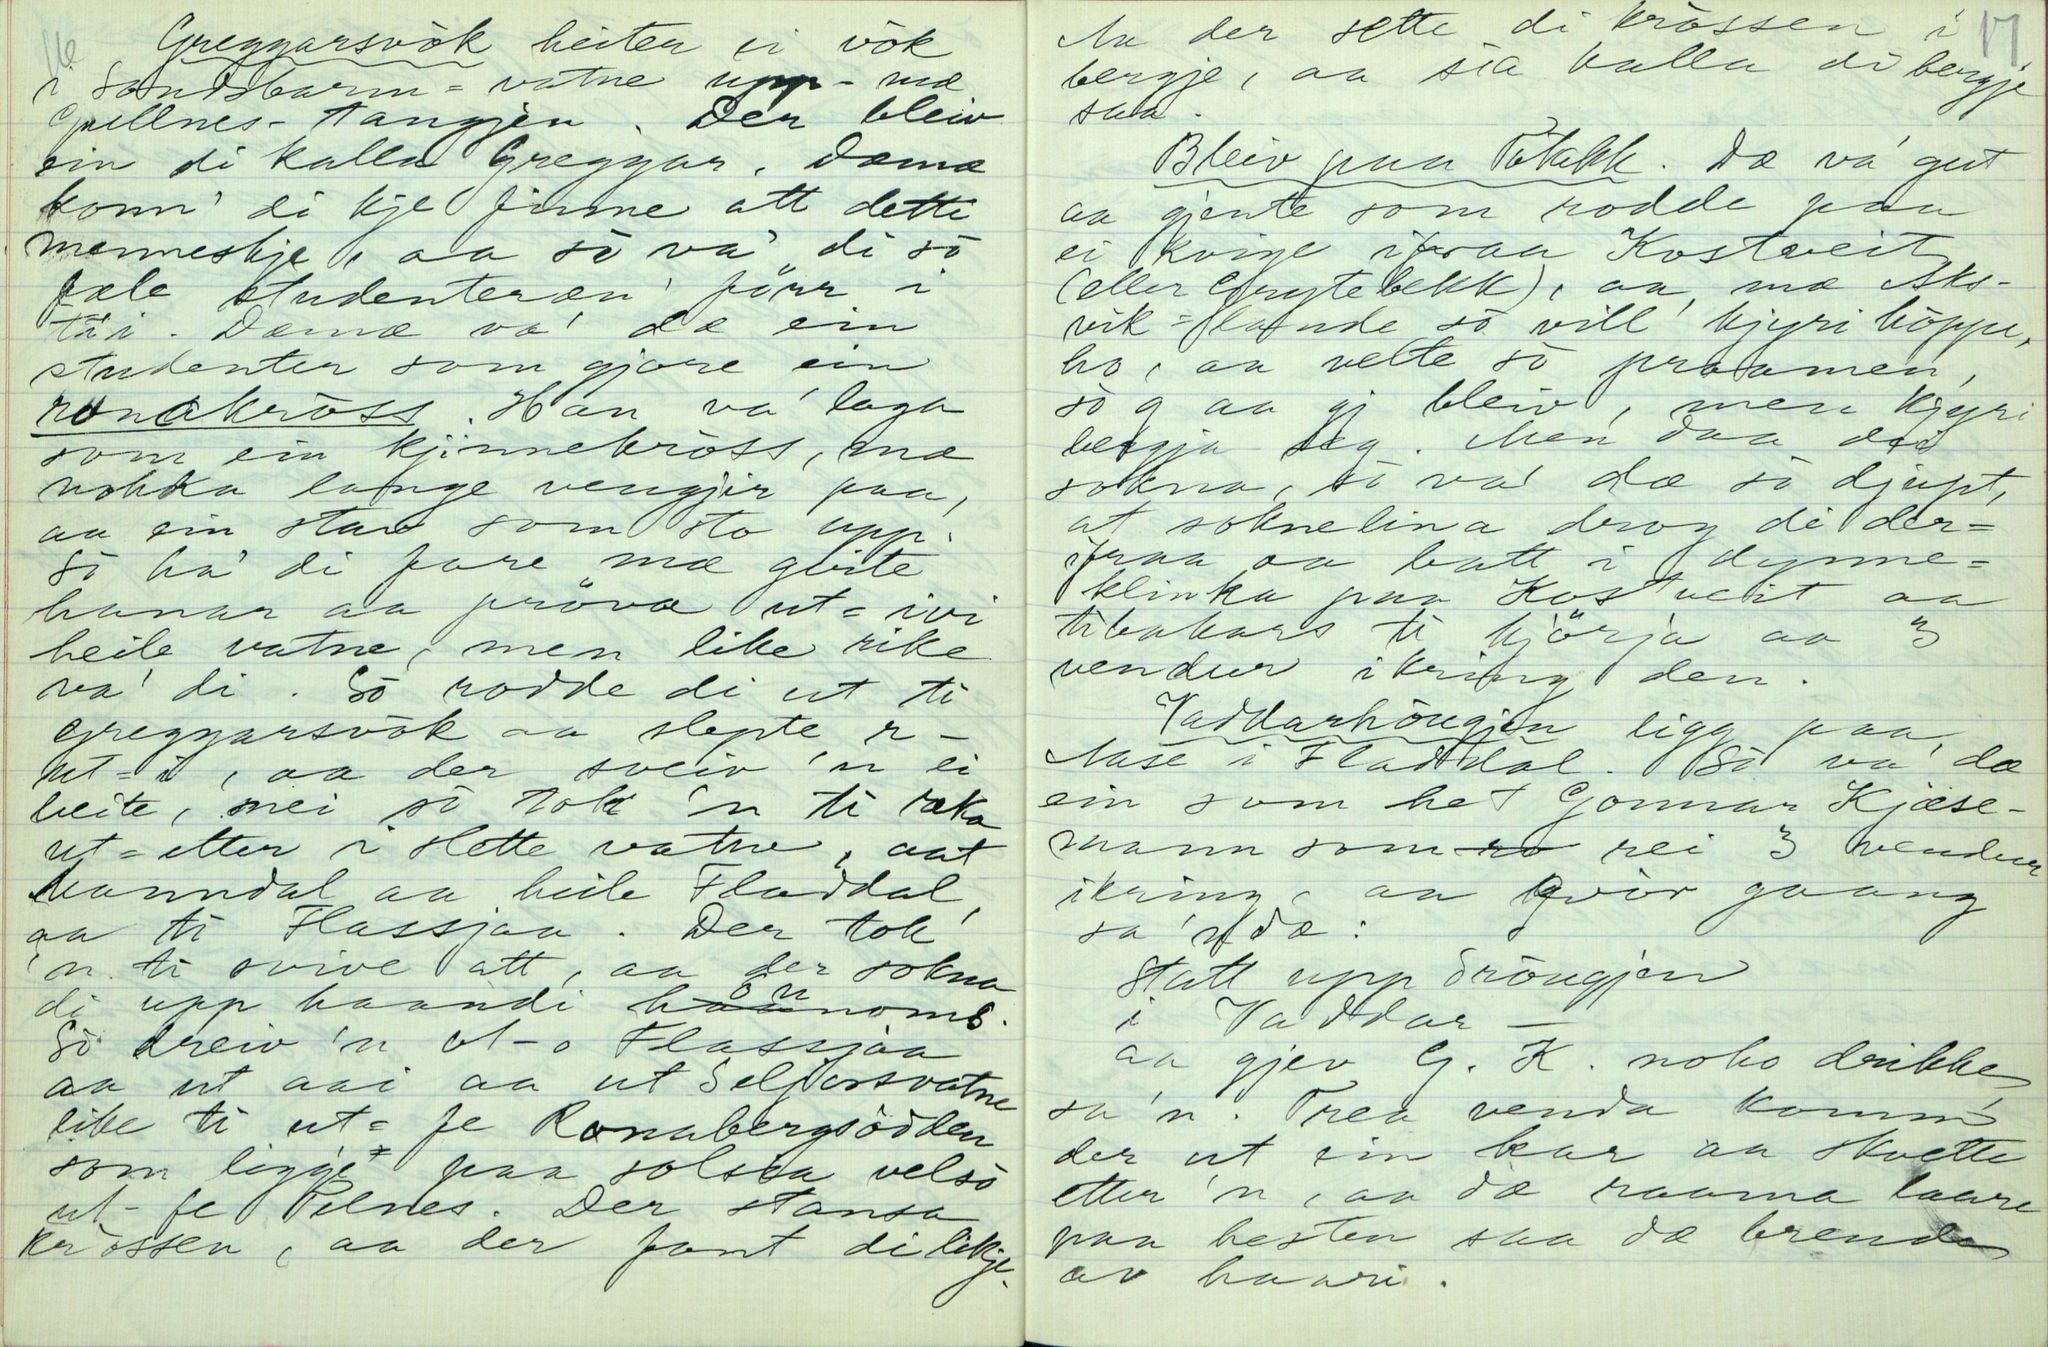 16
Greggarsvök heiter ei vök
i Sandsbarm = vatne upp - mæ
Gjellnes- tangjen. Der bleiv
ein di kalla Greggar. Damæ
konn' di kje finne att detti
menneskje, aa sò va' di sò
fæle studenteræn' førr i
tii. Damæ va' dæ ein
studenter som gjore ein
runakròss. Han va' laga
som ein kjinnekròss, mæ
nokka lange vengjir paa,
aa ein stav som sto upp.
Sò ha' di fare mæ gvite
hanar aa pröva ut = ivi
heile vatne, men like rike
va' di. Sò rodde di ut ti
Greggarsvök aa slepte 'n -
ut = i, aa der sveiv 'n ei
beite, mei sò tok 'n ti ræka
ut = etter i slette vatne, aat
Manndal aa heile Fladdal,
aa ti Flassjaa. Der tok
'n ti svive att, aa der sokna
di upp haandi hònnoms.
Sò dreiv 'n ut - o Flassjaa
aa ut aai aa ut Seljorsvatne
like ti ut = fe Ronabergsödden
som ligge paa solsia velsò
ut - fe Pilnes. Der stansa
kròssen, aa der fant di likje.
17
Aa der sette di kròssen i
bergje, aa sia kalla di bergje
saa.
Bleiv paa Tòkakk. Dæ va' gut
aa gjente som rodde paa
ei kvige ifraa Kostveit
(eller Grytebekk), aa mæ Aks-
vik = lande sò vill' kjyri höppe,
ho, aa velte sò praamen,
sò g aa gj bleiv, men kjyri
bergja seg. Men daa dei
sokna, sò va' dæ sò djupt,
at soknelina drog di der =
ifraa aa batt i dynne =
klinka paa Kostveit aa
tibakars ti kjörja aa 3
vendur ikring den.
Vaddarhöugjen ligg paa
Aase i Fladdal. Sò va' dæ
ein som het Gonnar Kjæse-
mann som rei 3 vendur
ikring, aa kvòr gaang
sa 'n dæ:
Statt upp Dròugjen
i Vaddar —
aa gjev G. K. noko drikke,
sa 'n. Trea venda komm'
der ut ein kar aa skvette
etter 'n, aa dæ raama laare
paa hesten saa dæ brende
av haari.